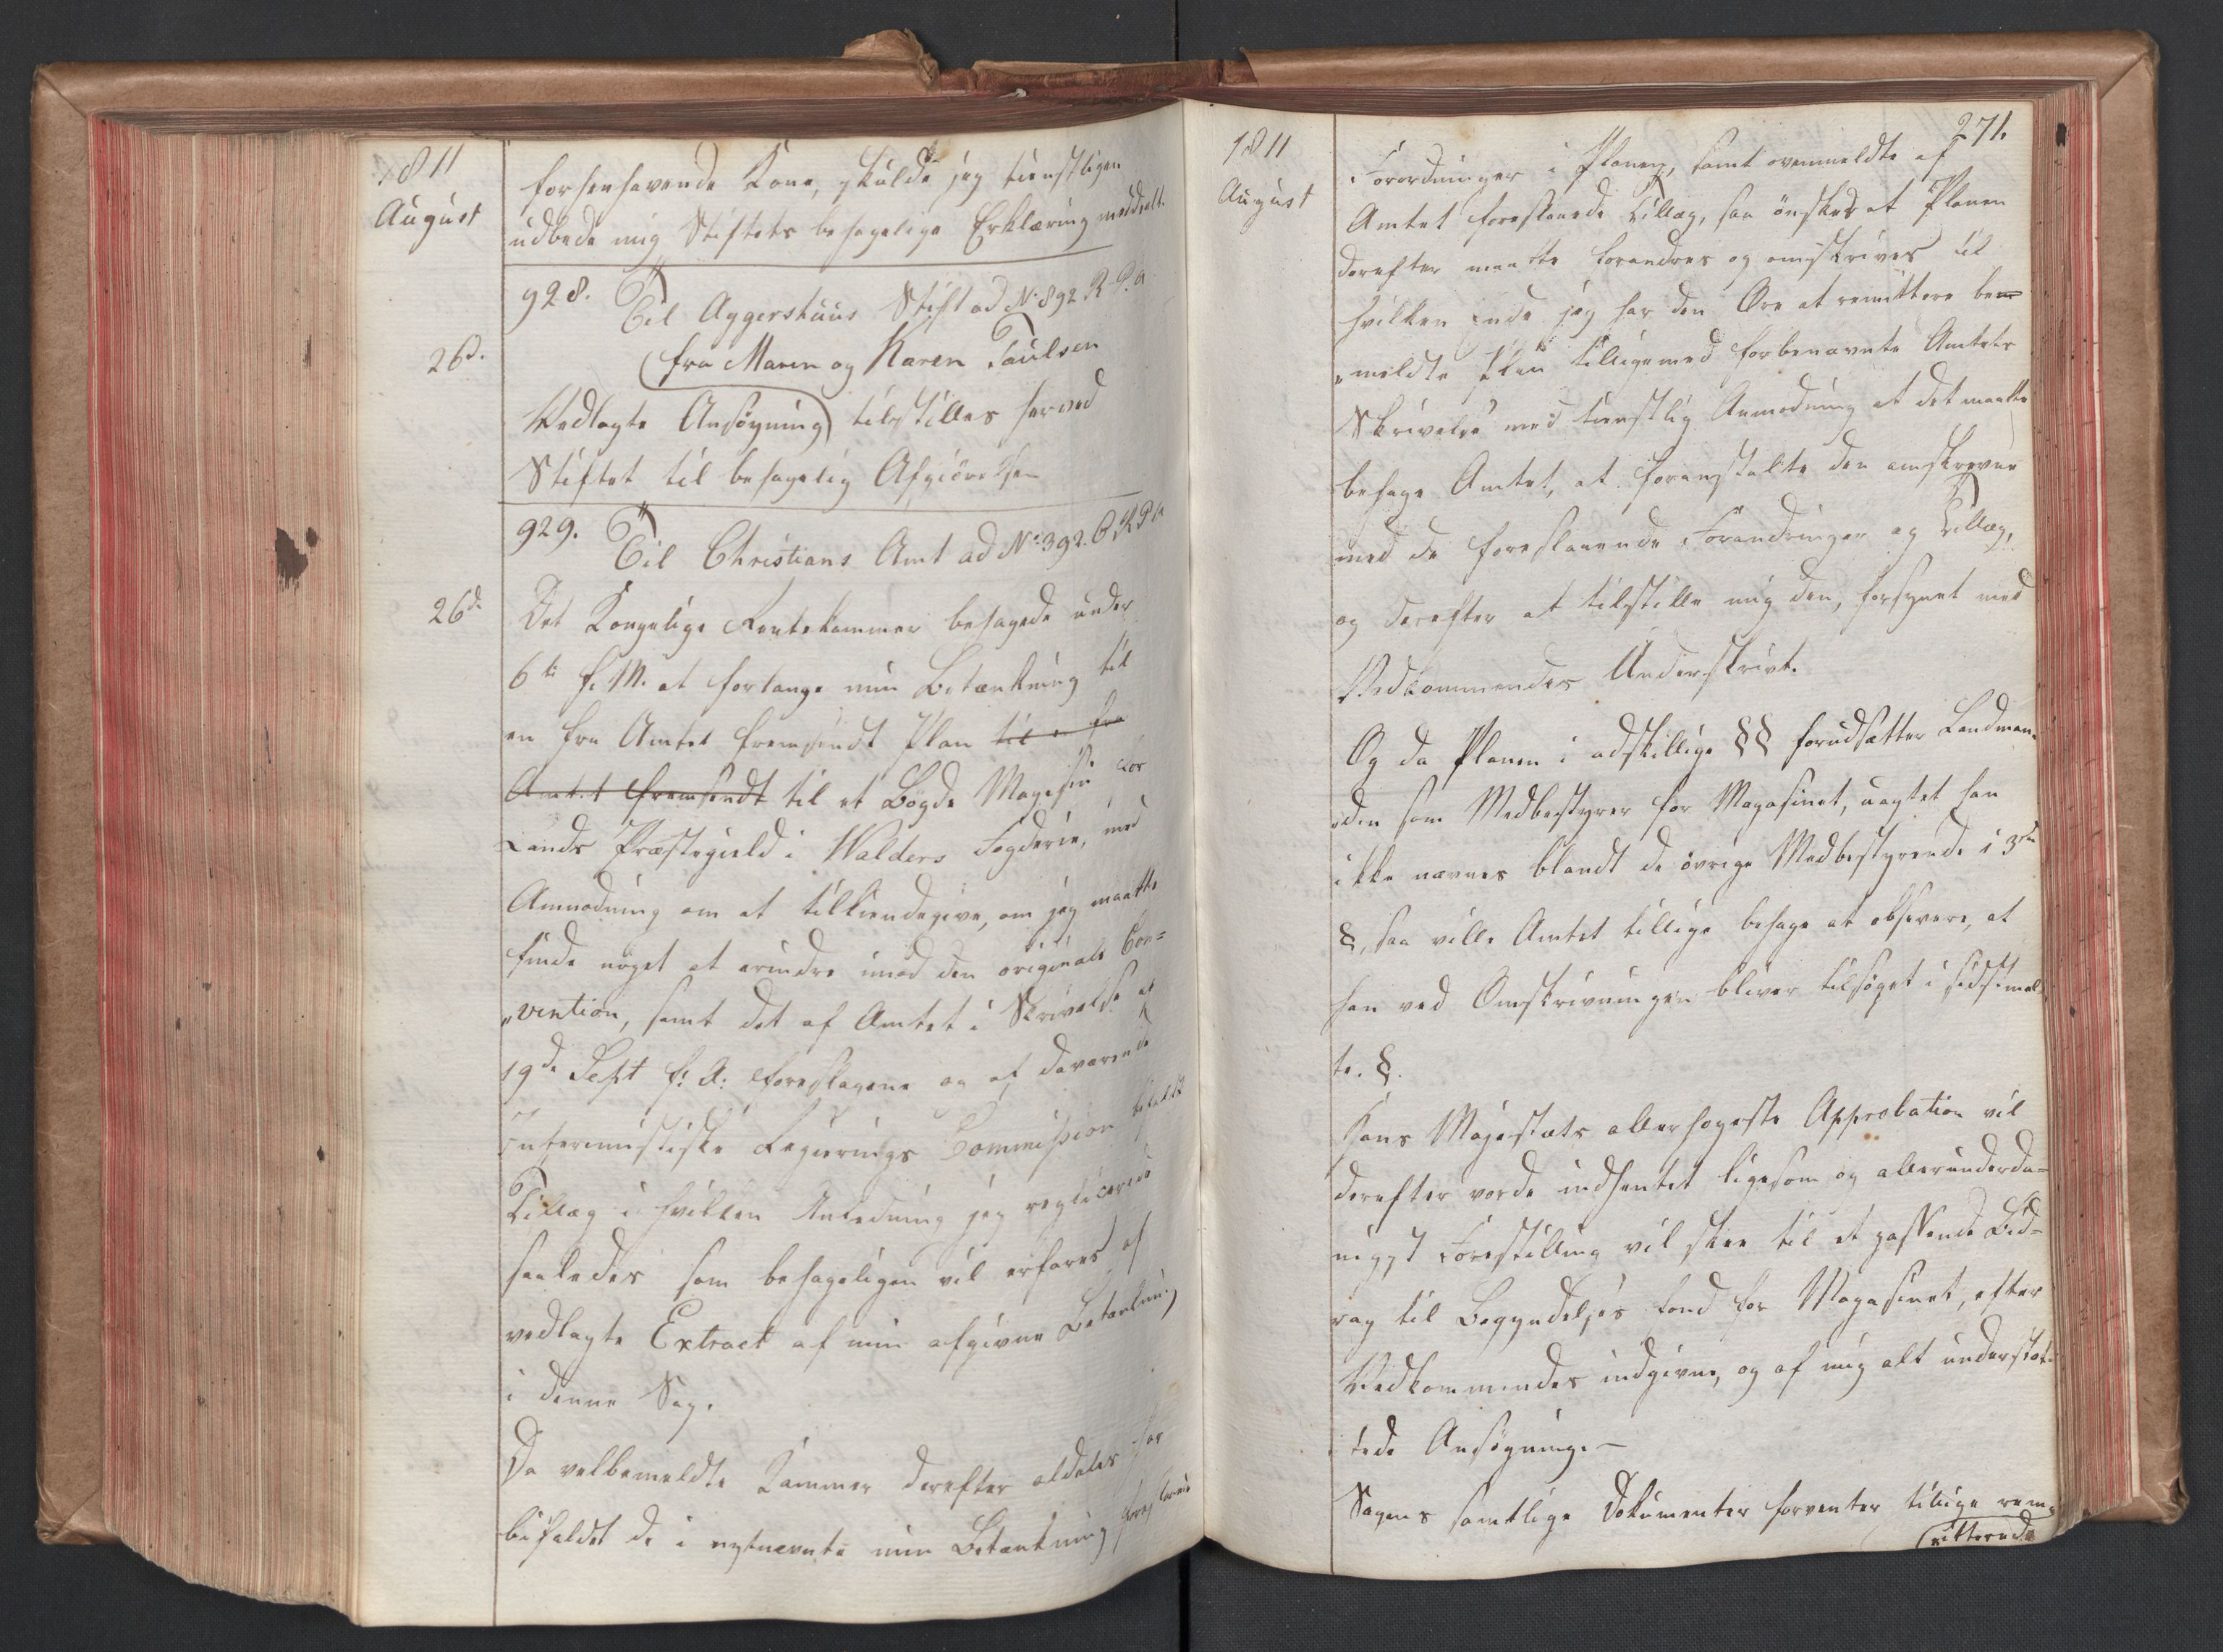 1811
August
forhenhavende Kone, skulde jeg tienstligen
udbede mig Stiftets behagelige Erklæring meddeelt.
928. Til Aggershuus Stift ad No 892 R. P. a
26d.
(fra Maren og Karen Paulsen
Vedlagte Ansøgning) tilstilles herved
Stiftet til behagelig Afgiörelse
929. Til Christians Amt ad No 392.
26d.
Det Kongelige Rentekammer behagede under
6te f. M. at forlange min Betænkning til
en fra Amtet fremsendt Plan til en fra
Amtet fremsendt til et Bøgde Magasin for
Lands Præstegield i Walders Fogderie, med
Anmodning om at tilkiendegive, om jeg maatte
finde noget at erindre imod den originale Con=
„vention, samt det af Amtet i Skrivelse af
19de Sept f. A: foreslagene og af daværende
Interimistiske Regierings Commission bifaldt
Tillæg i hvilken Anledning jeg replicerede
saaledes som behageligen vil erfares af
vedlagte Extract af min afgivne Betænkning
i denne Sag.
Da velbemeldte Kammer derefter aldeles har
bifaldet de i nytnævnte min Betænkning foreslaaede
1811
August
271.
Forordninger i Planen, samt ovenmeldte af
Amtet foreslaaede Tillæg, saa ønskes at Planen
derefter maatte forandres og omskrives til
hvilken Ende jeg har den Ære at remittere bem
„meldte Plan tilligemed forbenævnte Amtets
Skrivelse med tienstlig Anmodning at det maatte
behage Amtet, at foranstalte den omskreven
med de foreslaaende Forandringer og Tillæg,
og derefter at tilstille mig den, forsynet med
Vedkommendes Underskrivt.
Og da Planen i adskillige §§ forudsætter Landman„
„den som Medbestyrer for Magasinet, uagtet han
ikke nævnes blandt de øvrige Medbestyrende i 3die
§, saa ville Amtet tillige behage at observere, at
han ved Omskrivningen bliver tilføyet i sidstmeld
te. §.
Hans Majestæts allerhøyeste Approbation vil
derefter vorde indhentet ligesom og allerunderda=
nigst Forestilling vil skee til et passende Bid=
rag til Begyndelses Fond for Magasinet, efter
Vedkommendes indgivne, og af mig alt understøt=
tede Ansøgning.—
Sagens samtlige Dokumenter forventer tillige rem„
(itterede